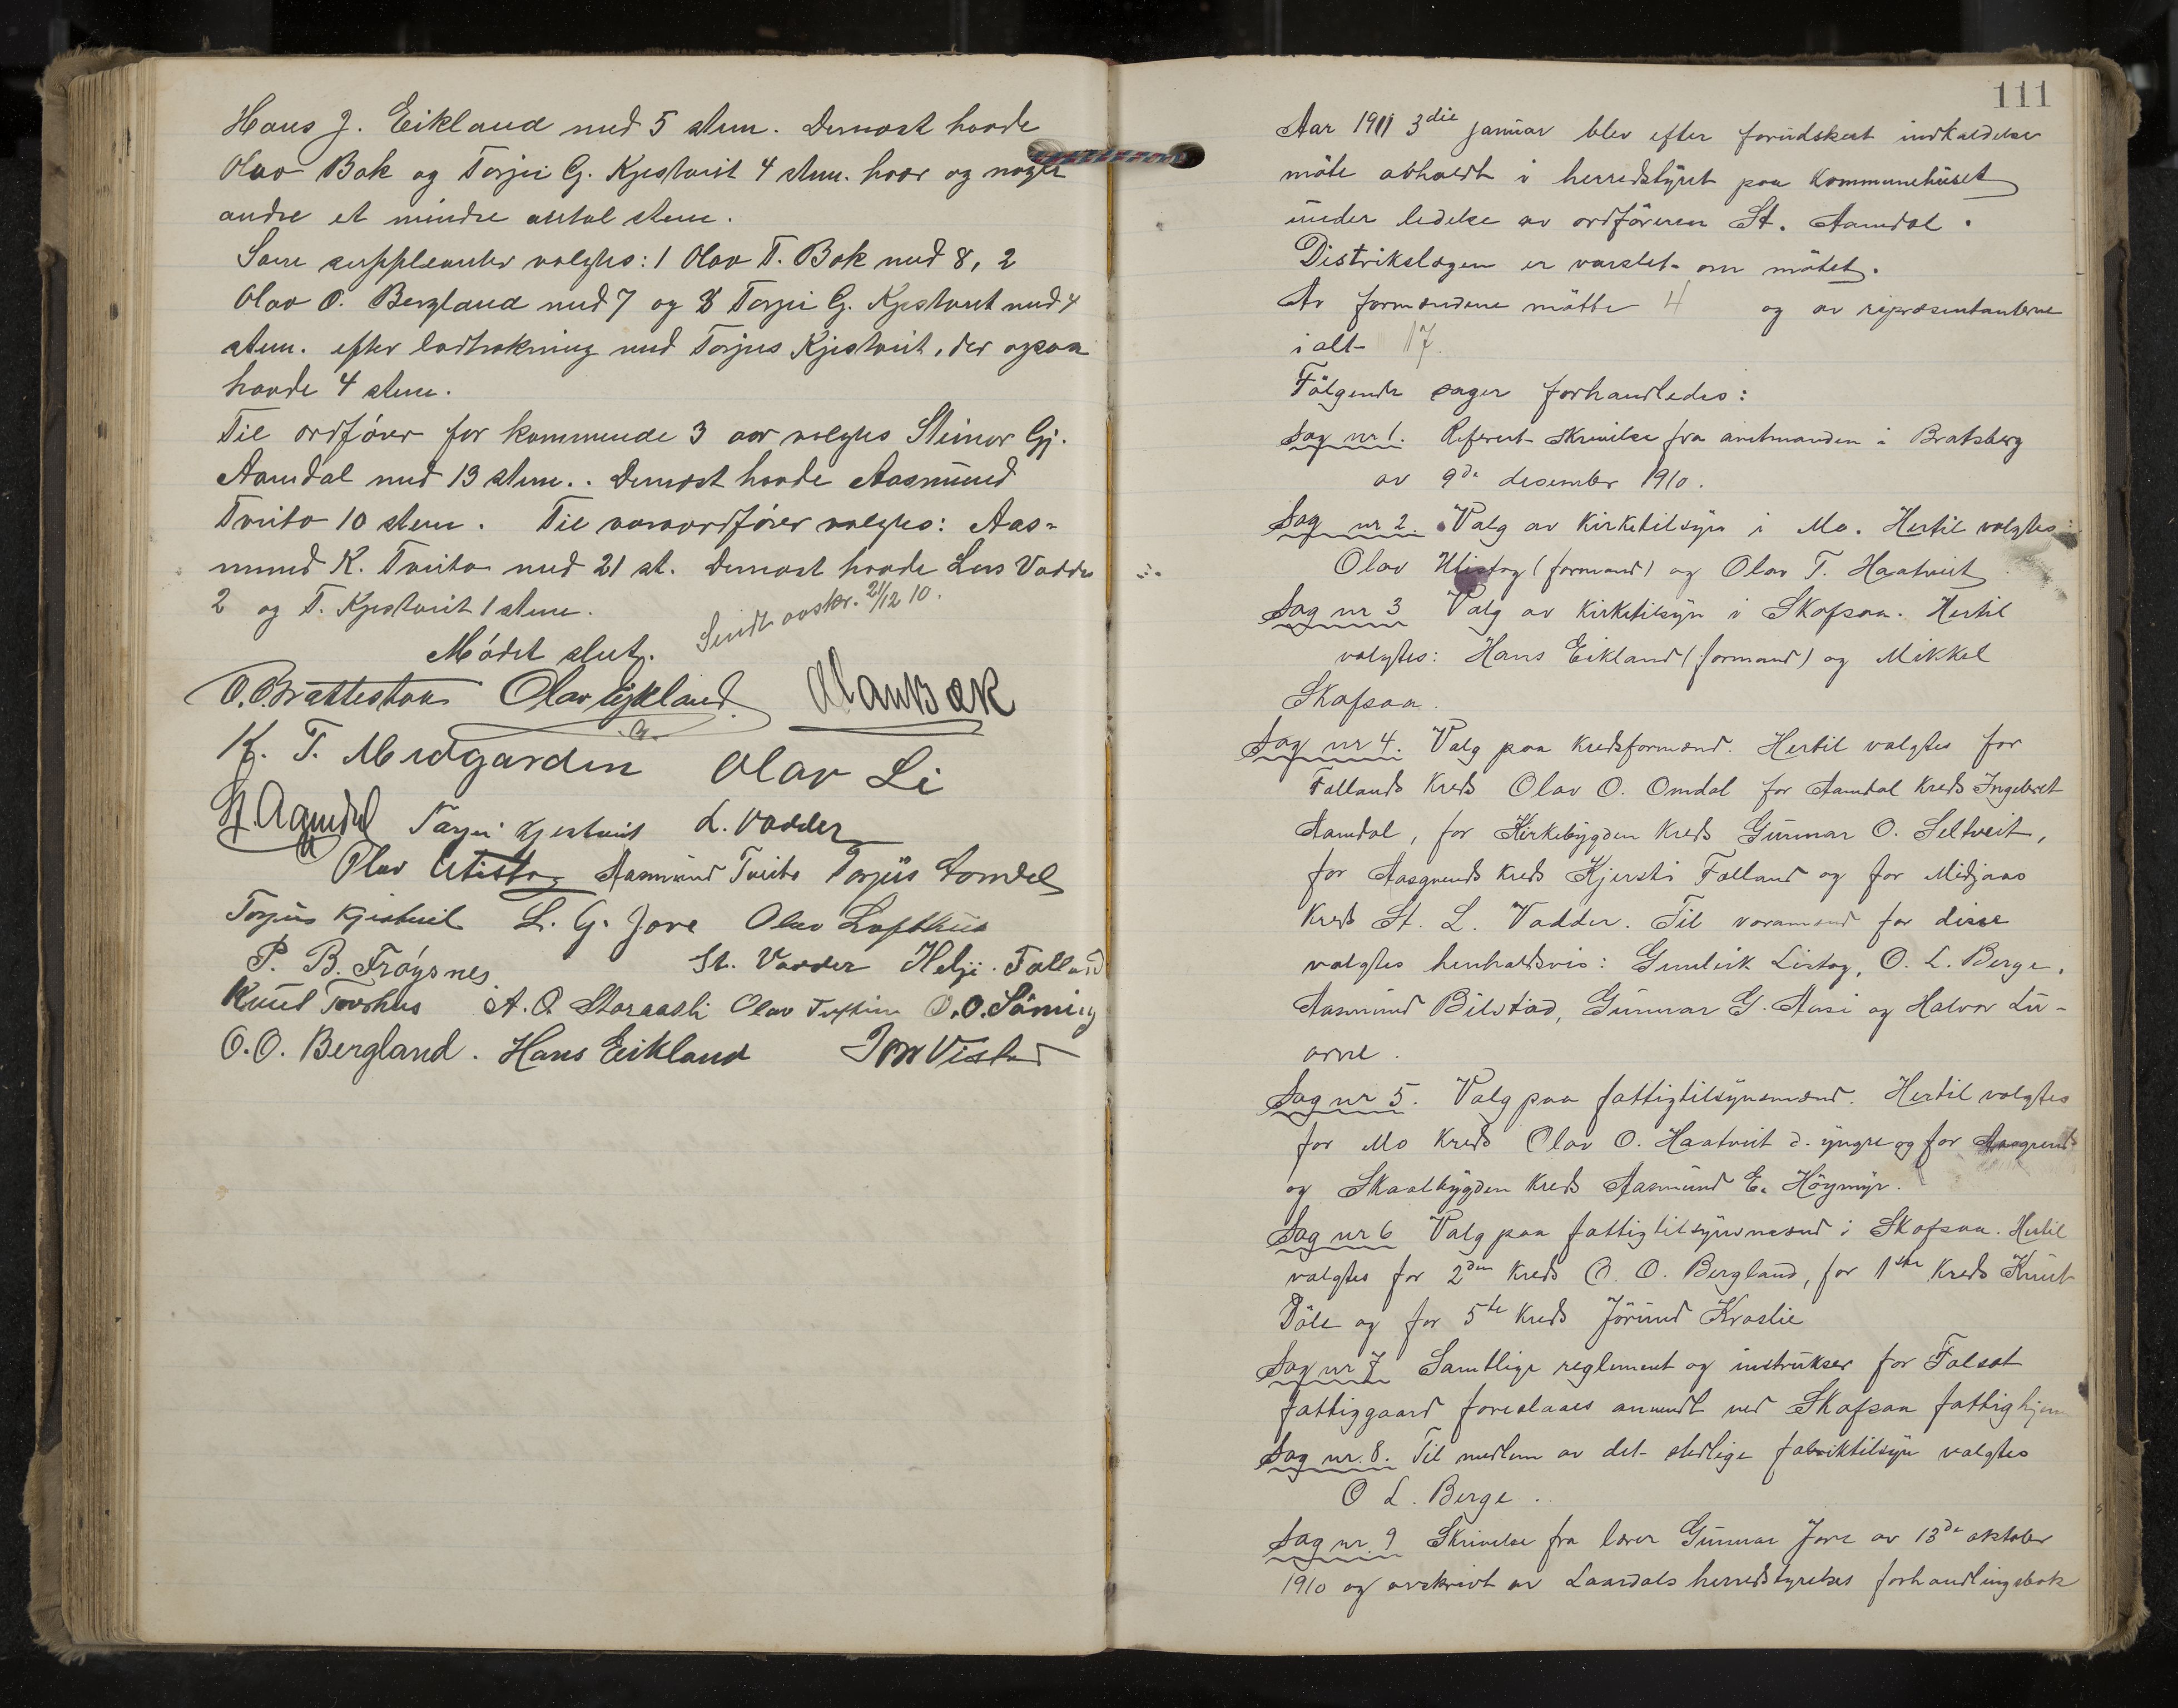 Hans J. Eikland med 5 stem. Dernæst havde
Olav Bak og Torjei G. Kjestveit 4 stem. hver og nogle
andre et mindre antal stem.
Som suppleanter valgtes: 1 Olav T. Bak med 8, 2
Olav O. Bergland med 7 og 3 Torjei G. Kjestveit med 4
stem. efter lodtrækning med Torjus Kjestveit, der ogsaa
havde 4 stem.
Til ordfører for kommende 3 aar valgtes Steinar Gj.
Aamdal med 13 stem.. Dernæst havde Aasmund
Tveito 10 stem. Til varaordfører valgtes: Aas-
mund K. Tveito med 21 st. Dernæst havde Lars Vadder
2 og T. Kjestveit 1 stem.
Sendt avskr. 21/12 10.
Mødet slut.
O. Brattestaa Olav Eikland
K. T. Midgarden Olav Li
St. Aamdal Torjei Kjestveit L. Vadder
Olav Utistog Aasmund Tveito Torjus Aamdal
Torjus Kjestveit L. G. Jore Olav Lofthus
P. B. Frøysnes St. Vadder Helje Falland
Knut Tovshus A. O. Storaasli Olav O. O. Søming
O. O. Bergland. Hans Eikland
111
Aar 1911 3die januar blev efter forudskeet indkaldelse
møte avholdt i herredstyret paa kommunehuset
under ledelse av ordføreren St. Aamdal.
Distrikslægen er varslet om møtet.
Av formændene møtte 4 og av repræsentanterne
i alt 17.
Følgende sager forhandledes:
Sag nr 1. Referert skrivelse fra amtmanden i Bratsberg
av 9de desember 1910.
Sag nr 2. Valg av kirketilsyn i Mo. Hertil valgtes:
Olav Utistog (formand) og Olav T. Haatveit
Sag nr 3 Valg av kirketilsyn i Skafsaa. Hertil
valgtes: Hans Eikland (formand) og Mikkel
Skafsaa.
Sag nr 4. Valg paa kredsformænd. Hertil valgtes for
Fallands kreds Olav O. Omdal for Aamdal kreds Ingebret
Aamdal, for Kirkebygden kreds Gunnar O. Seltveit,
for Aasgrends kreds Kjersti Falland og for Midjaas
kreds St. L. Vadder. Til varamænd for disse
valgtes henholdsvis: Gunleik Listog, O. L. Berge,
Aasmund Bilstad, Gunnar G. Aasi og Halvor Lu-
arne.
Sag nr 5. Valg paa fattigtilsynsmænd. Hertil valgtes
for Mo kreds Olav O. Haatveit d. yngre og for Aasgrends
og Skaalbygden kreds Aasmund E. Høymyr.
Sag nr 6 Valg paa fattigtilsynsmænd i Skafsaa. Hertil
valgtes for 2den kreds O. O. Bergland, for 1ste kreds Knut
Døle og for 5te kreds Jørund Kraslie
Sag nr 7 Samtlige reglement og instrukser for Falsat
fattiggaard foreslaaes anvendt ved Skafsaa fattighjem
Sag nr. 8. Til medlem av det stedlige fabriktilsyn valgtes
O L. Berge.
Sag nr. 9 Skrivelse fra lærer Gunnar Jore av 13de oktober
1910 og avskrivt av Laardals herredstyrelses forhandlingsbok